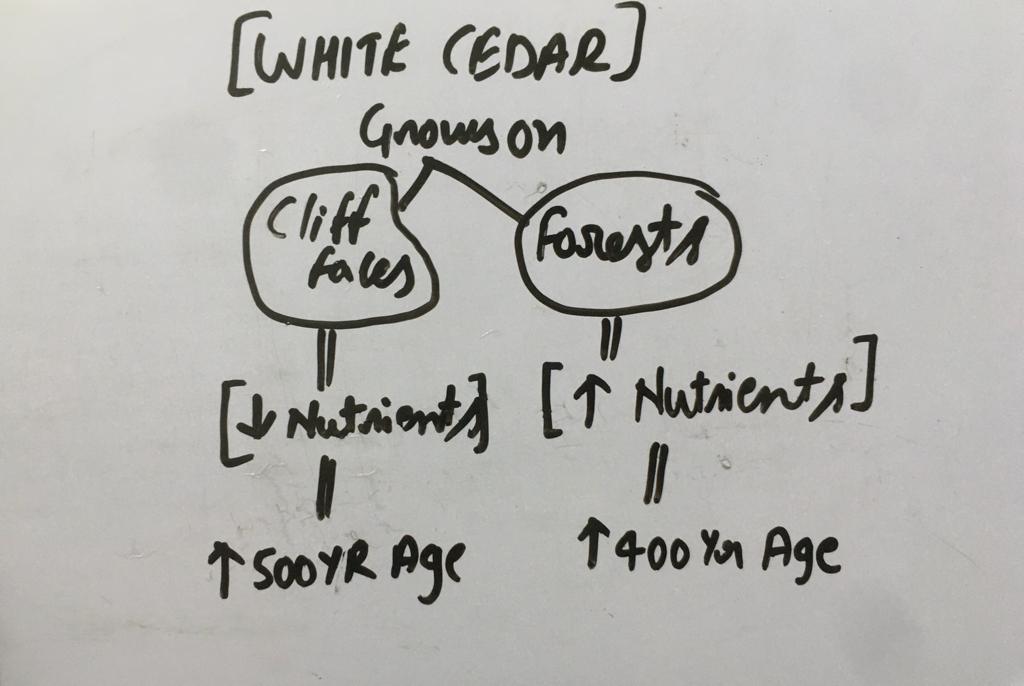 [WHITE CEDAR]
Grows on
Cliff
faces
Forests
[↓ Nutrients]
[↑ Nutrients]
↑ 500 YR Age
↑ 400 Yr Age